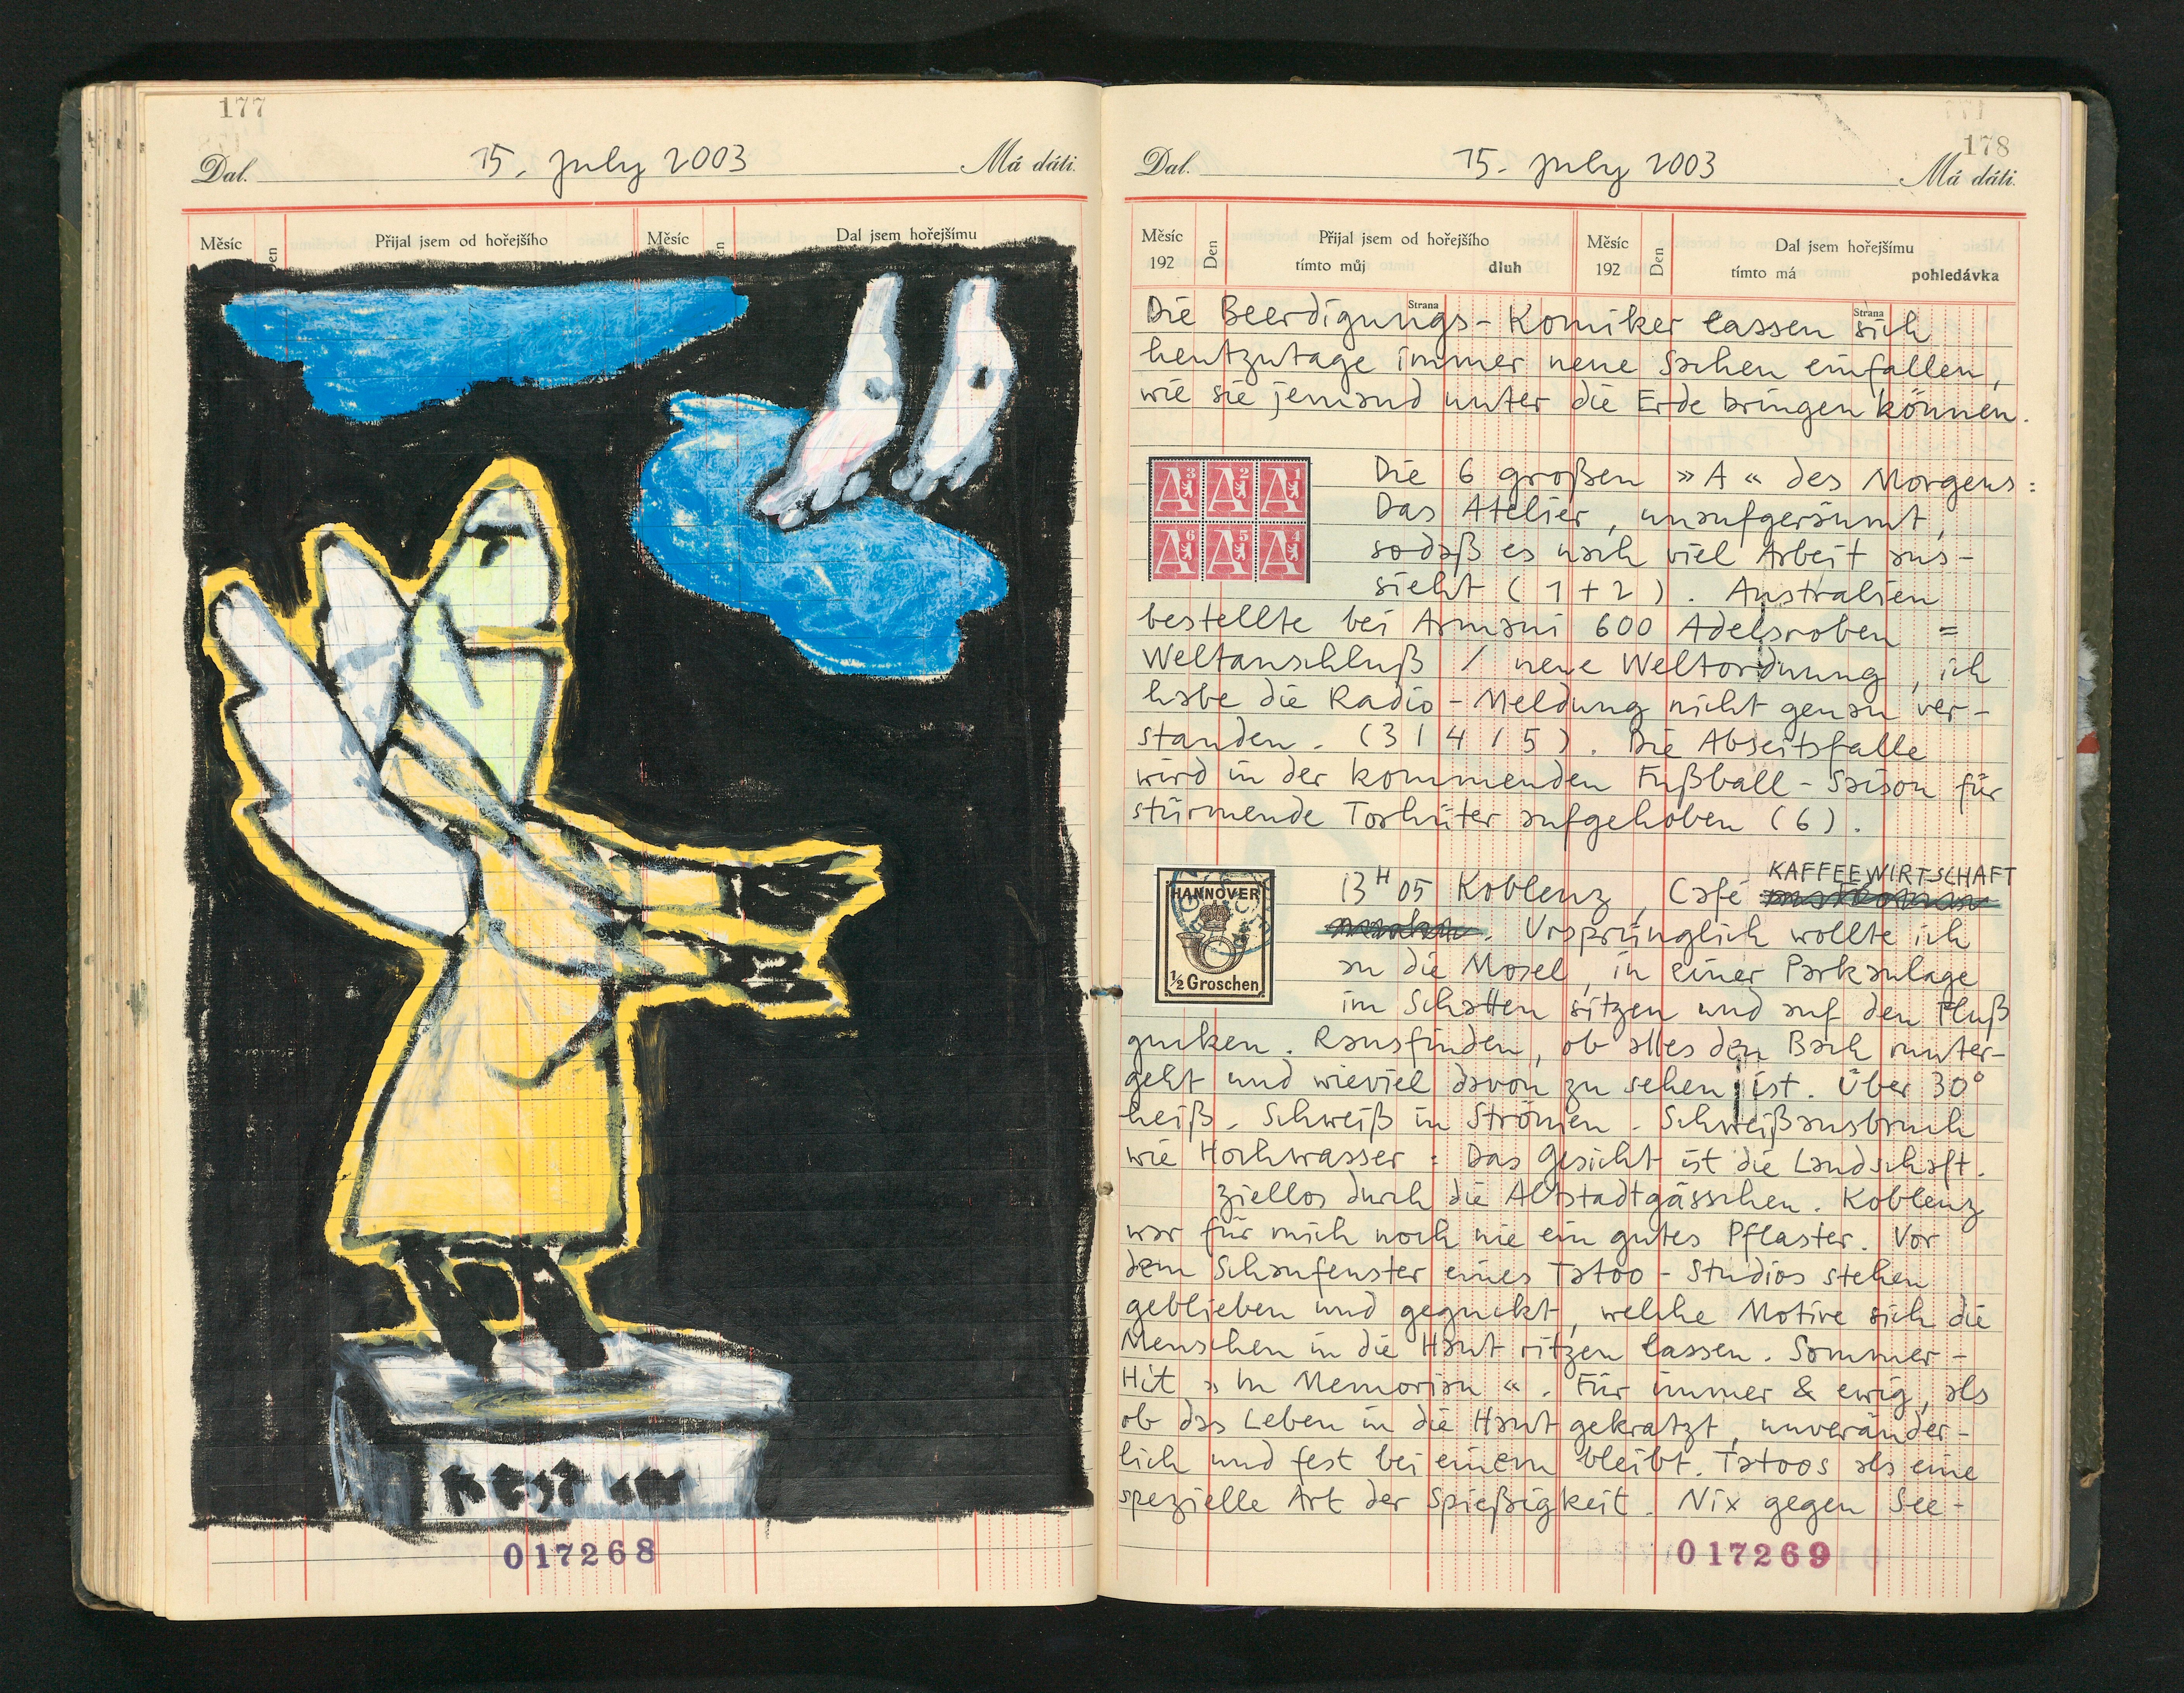 177
Dal. 15. july 2003 Má dáti.
Měsíc Den Přijal jsem od hořejšího Měsíc Den Dal jsem hořejšímu
017268
178
Dal. 15. july 2003 Má dáti.
Měsíc Den Přijal jsem od hořejšího Měsíc Den Dal jsem hořejšímu
192 tímto můj dluh 192 tímto má pohledávka
Strana Strana
Die Beerdigungs-Komiker lassen sich
heutzutage immer neue Sachen einfallen,
wie sie jemand unter die Erde bringen können.
A3 A2 A1
A6 A5 A4
Die 6 großen »A« des Morgens:
Das Atelier, unaufgeräumt,
sodaß es nach viel Arbeit aus-
sieht (1+2). Australien
bestellte bei Armani 600 Adelsroben =
Weltanschluß / neue Weltordnung, ich
habe die Radio-Meldung nicht genau ver-
standen. (3/4/5). Die Abseitsfalle
wird in der kommenden Fußball-Saison für
stürmende Torhüter aufgehoben (6).
HANNOVER
1/2 Groschen
KAFFEEWIRTSCHAFT
13H05 Koblenz, Café
. Ursprünglich wollte ich
an die Mosel, in einer Parkanlage
im Schatten sitzen und auf den Fluß
gucken. Rausfinden, ob alles den Bach runter-
geht und wieviel davon zu sehen ist. Über 30°
heiß. Schweiß in Strömen. Schweißausbruch
wie Hochwasser: Das Gesicht ist die Landschaft.
Ziellos durch die Altstadtgässchen. Koblenz
war für mich noch nie ein gutes Pflaster. Vor
dem Schaufenster eines Tatoo-Studios stehen
geblieben und geguckt, welche Motive sich die
Menschen in die Haut ritzen lassen. Sommer-
Hit »In Memorian«. Für immer & ewig, als
ob das Leben in die Haut gekratzt, unveränder-
lich und fest bei einem bleibt. Tatoos als eine
spezielle Art der Spießigkeit. Nix gegen See-
017269